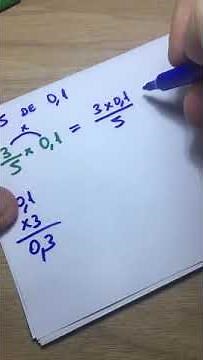 5 DE 0,1
x
3/5 x 0,1 = 3x0,1/5
0,1
x3
0,3